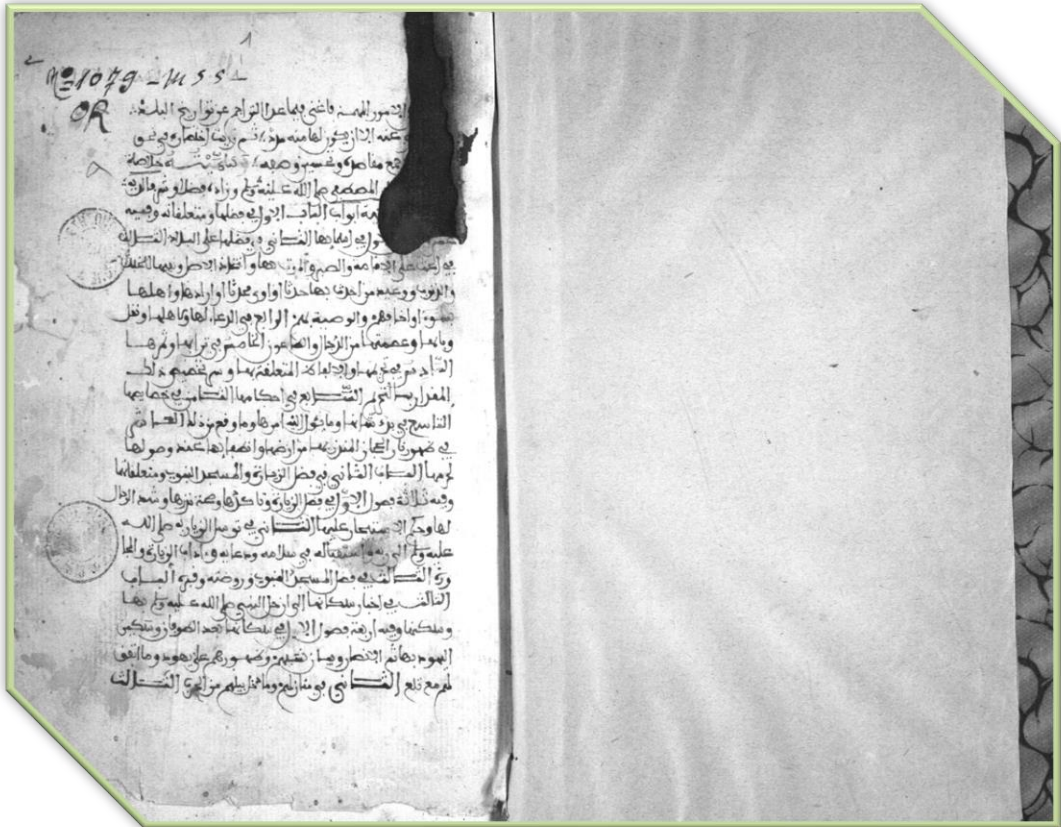 1
No 1079 - Mss
OR
الامور المهمة فاغنى فيما عدا التراجم عن تواريخ البلد
عنه الا ان يكون لها منه مدد ثم رايت اختصاره في نحو
مع مقاصده وتحسين وصفه خلاصة
المصطفى صلى الله عليه وسلم وزاده فضلا وشرفا لديه
ابواب الباب الاول في فضلها ومتعلقاته وفيه
في اسمائها الثاني في تفضيلها على البلاد الثالث
في الحث على الاقامة والصبر والموت بها واتخاذ الاصل ونفيها الخبث
والذنوب ووعيد من احدث بها حدثا او اوى محدثا او ارادها واهلها
بسوء او اخافهم والوصية بهم الرابع في الدعاء لها ولاهلها ونقل
وبائها وعصمتها من الدجال والطاعون الخامس في ترابها وثمرها
السادس في تحريمها والالفاظ المتعلقة بها وسر تخصيص ذلك
المقدار بالتحريم السابع في احكامها الثامن في خصائصها
التاسع في بدء شانها وما يؤل اليه امرها وما وقع من ذلك العاشر
في ظهور نار الحجاز المنذر بها من ارضها وانطفائها عند وصولها
لحرمها الباب الثاني في فضل الزيارة والمسجد النبوي ومتعلقاتها
وفيه ثلاثة فصول الاول في فضل الزيارة وتاكدها وصحة نذرها وشد الرحال
لها وحكم الاستيجار عليها الثاني في توسل الزائر به صلى الله
عليه وسلم الى ربه واستقباله في سلامه ودعائه وءاداب الزيارة والمجا
ورة الثالث في فضل المسجد النبوي وروضته وفيه الباب
الثالث في اخبار سكانها الى ان حل النبي صلى الله عليه وسلم بها
وسكناها وفيه اربعة فصول الاول في سكانها بعد الطوفان وسكنى
اليهود بها ثم الانصار وبيان نسبهم وظهورهم على يهود وما اتفق
لهم مع تبع الثاني في منازلهم وما دخل بينهم من الحرب الثالث